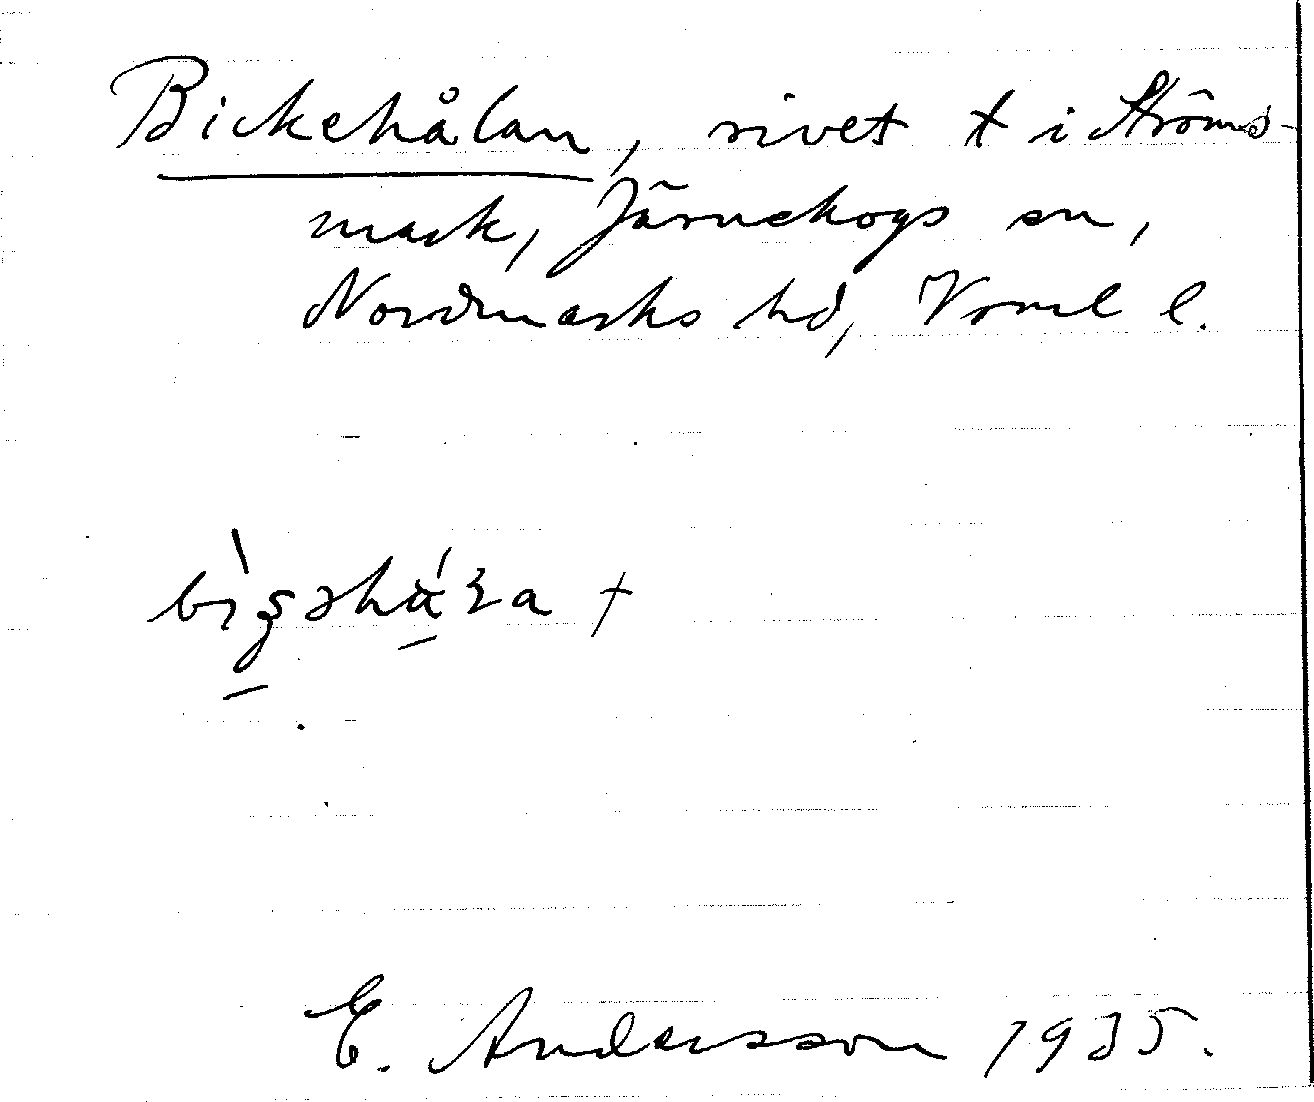 Bickehålan, rivet t i Ströms-
mark, Järnskogs sn,
Nordmarks hd, Vrml l.
E. Andersson 1935.